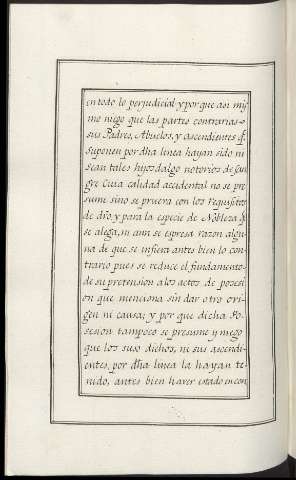 en todo lo perjudicial y por que asi mis
mo niego que las partes contrarias
sus Padres, Abuelos, y ascendientes q̃.
suponen por dh̃a linea hayan sido ni
sean tales hijosdalgo notorios de San
gre Cuia calidad accidental no se pre
sume sino se prueva con los requisitos
de dr̃o y para la especie de Nobleza q̃.
se alega, ni aun se espresa razon algu
na de que se infiera antes bien lo con
trario pues se reduce el fundamento
de su pretension a los actos de posesi
on que menciona sin dar otro ori
gen ni causa; y por que dicha Po
sesion tampoco se presume y niego
que los suso dichos, ni sus ascendi
entes por dh̃a linea la hayan te
nido, antes bien haver estado en con